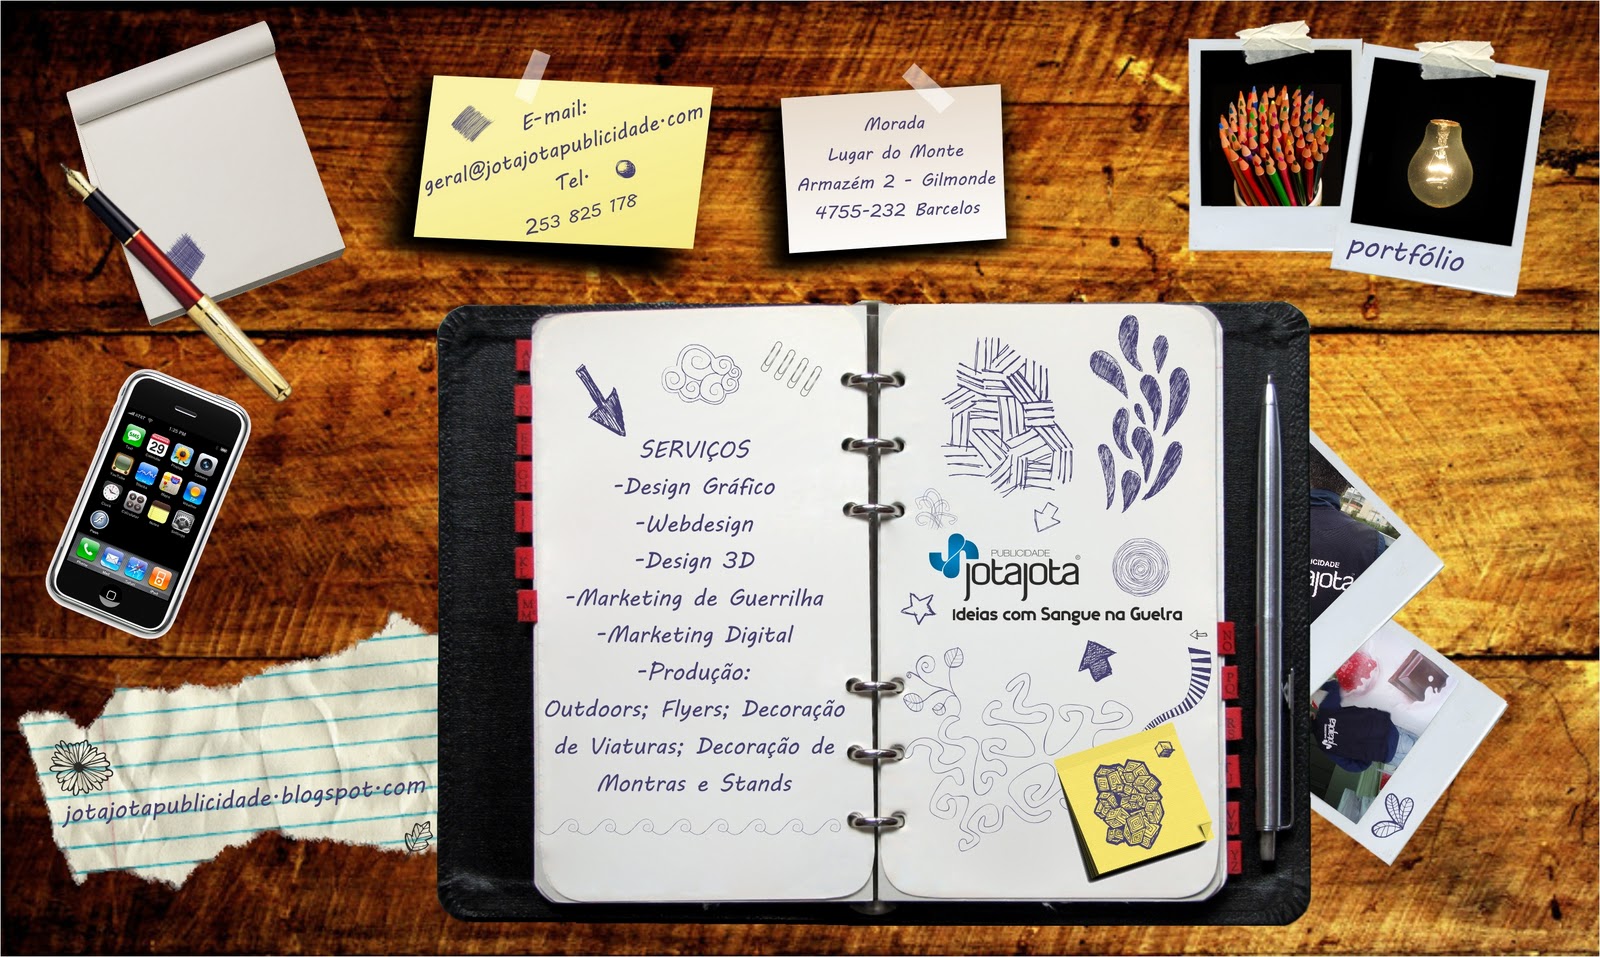 E-mail:
geral@jotajotapublicidade.com
Tel.
253 825 178
Morada
Lugar do Monte
Armazém 2 - Gilmonde
4755-232 Barcelos
portfólio
SERVIÇOS
-Design Gráfico
-Webdesign
-Design 3D
-Marketing de Guerrilha
-Marketing Digital
-Produção:
Outdoors; Flyers; Decoração
de Viaturas; Decoração de
Montras e Stands
PUBLICIDADE
jotajota
Ideias com Sangue na Guelra
jotajotapublicidade.blogspot.com
1:25 PM
29
jotajota